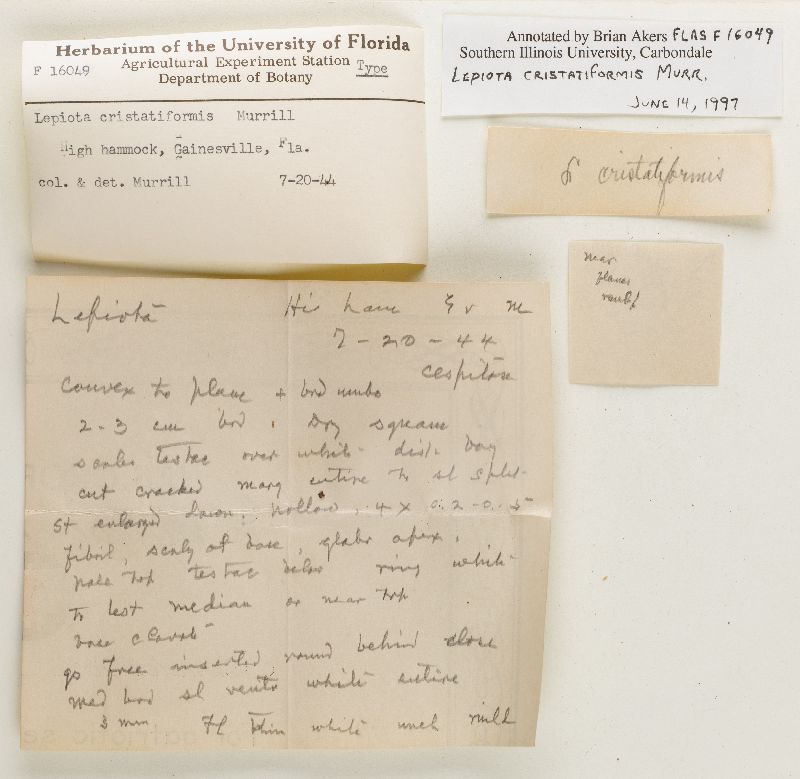 Herbarium of the University of Florida
F 16049 Agricultural Experiment Station Type
Department of Botany
Lepiota cristatiformis Murrill
High hammock, Gainesville, Fla.
col. & det. Murrill 7-20-44
Annotated by Brian Akers FLAS F 16049
Southern Illinois University, Carbondale
LEPIOTA CRISTATIFORMIS MURR.
JUNE 14, 1997
cristatiformis
mar
planes
Lepiota Hi ham G v M
7-20-44
cespitose
convex to plane + brd umbo
2-3 cm brd. Dry squam
scales testac over white disk bay
cut cracked marg entire to sl split
St enlarged down, hollow, 4 x 0.2-0.5
fibril, scaly at base, glabr apex,
pale top testac below ring white
to test median or near top
base clavate
gs free inserted round behind close
med brd sl ventr white entire
3 mm Fl thin white unch mild